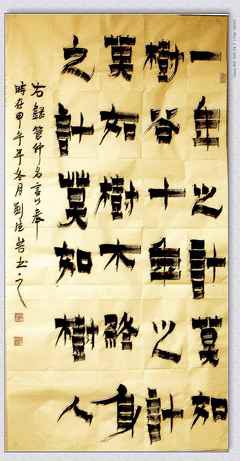 一年之計莫如
樹谷十年之計
莫如樹木終身
之計莫如樹人
右錄管仲名言以奉
時在甲午年冬月劉